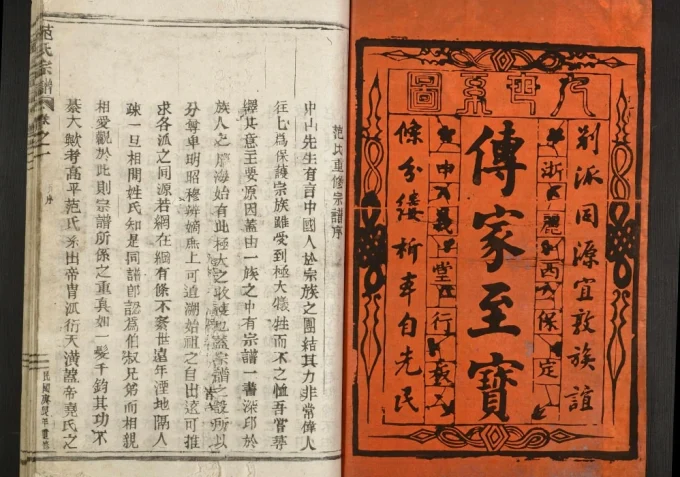 九世系圖
別派同源宜敦族誼
浙麗西保定
傳家至寶
申義堂行
條分縷析率自先民
范氏重修宗譜序
中山先生有言中國人於宗族之團結其力非常偉人
往々為保護宗族雖受到極大犧牲而不之恤吾嘗尋
繹其意主要原因蓋由一族之中有宗譜一書深印於
族人之腦海始有此極大之收穫也蓋宗譜之設所以
分尊卑明昭穆辨嫡庶上可追溯始祖之自出遠可推
求各派之同源若網在綱有條不紊世遠年湮地隔人
疎一旦相間姓氏知是同譜即認為伯叔兄弟而相親
相愛觀於此則宗譜所係之重真如一髮千鈞其功不
綦大歟考高平范氏系出帝胄派衍天潢蓋帝堯氏之
范氏宗譜
卷之一
序
民國